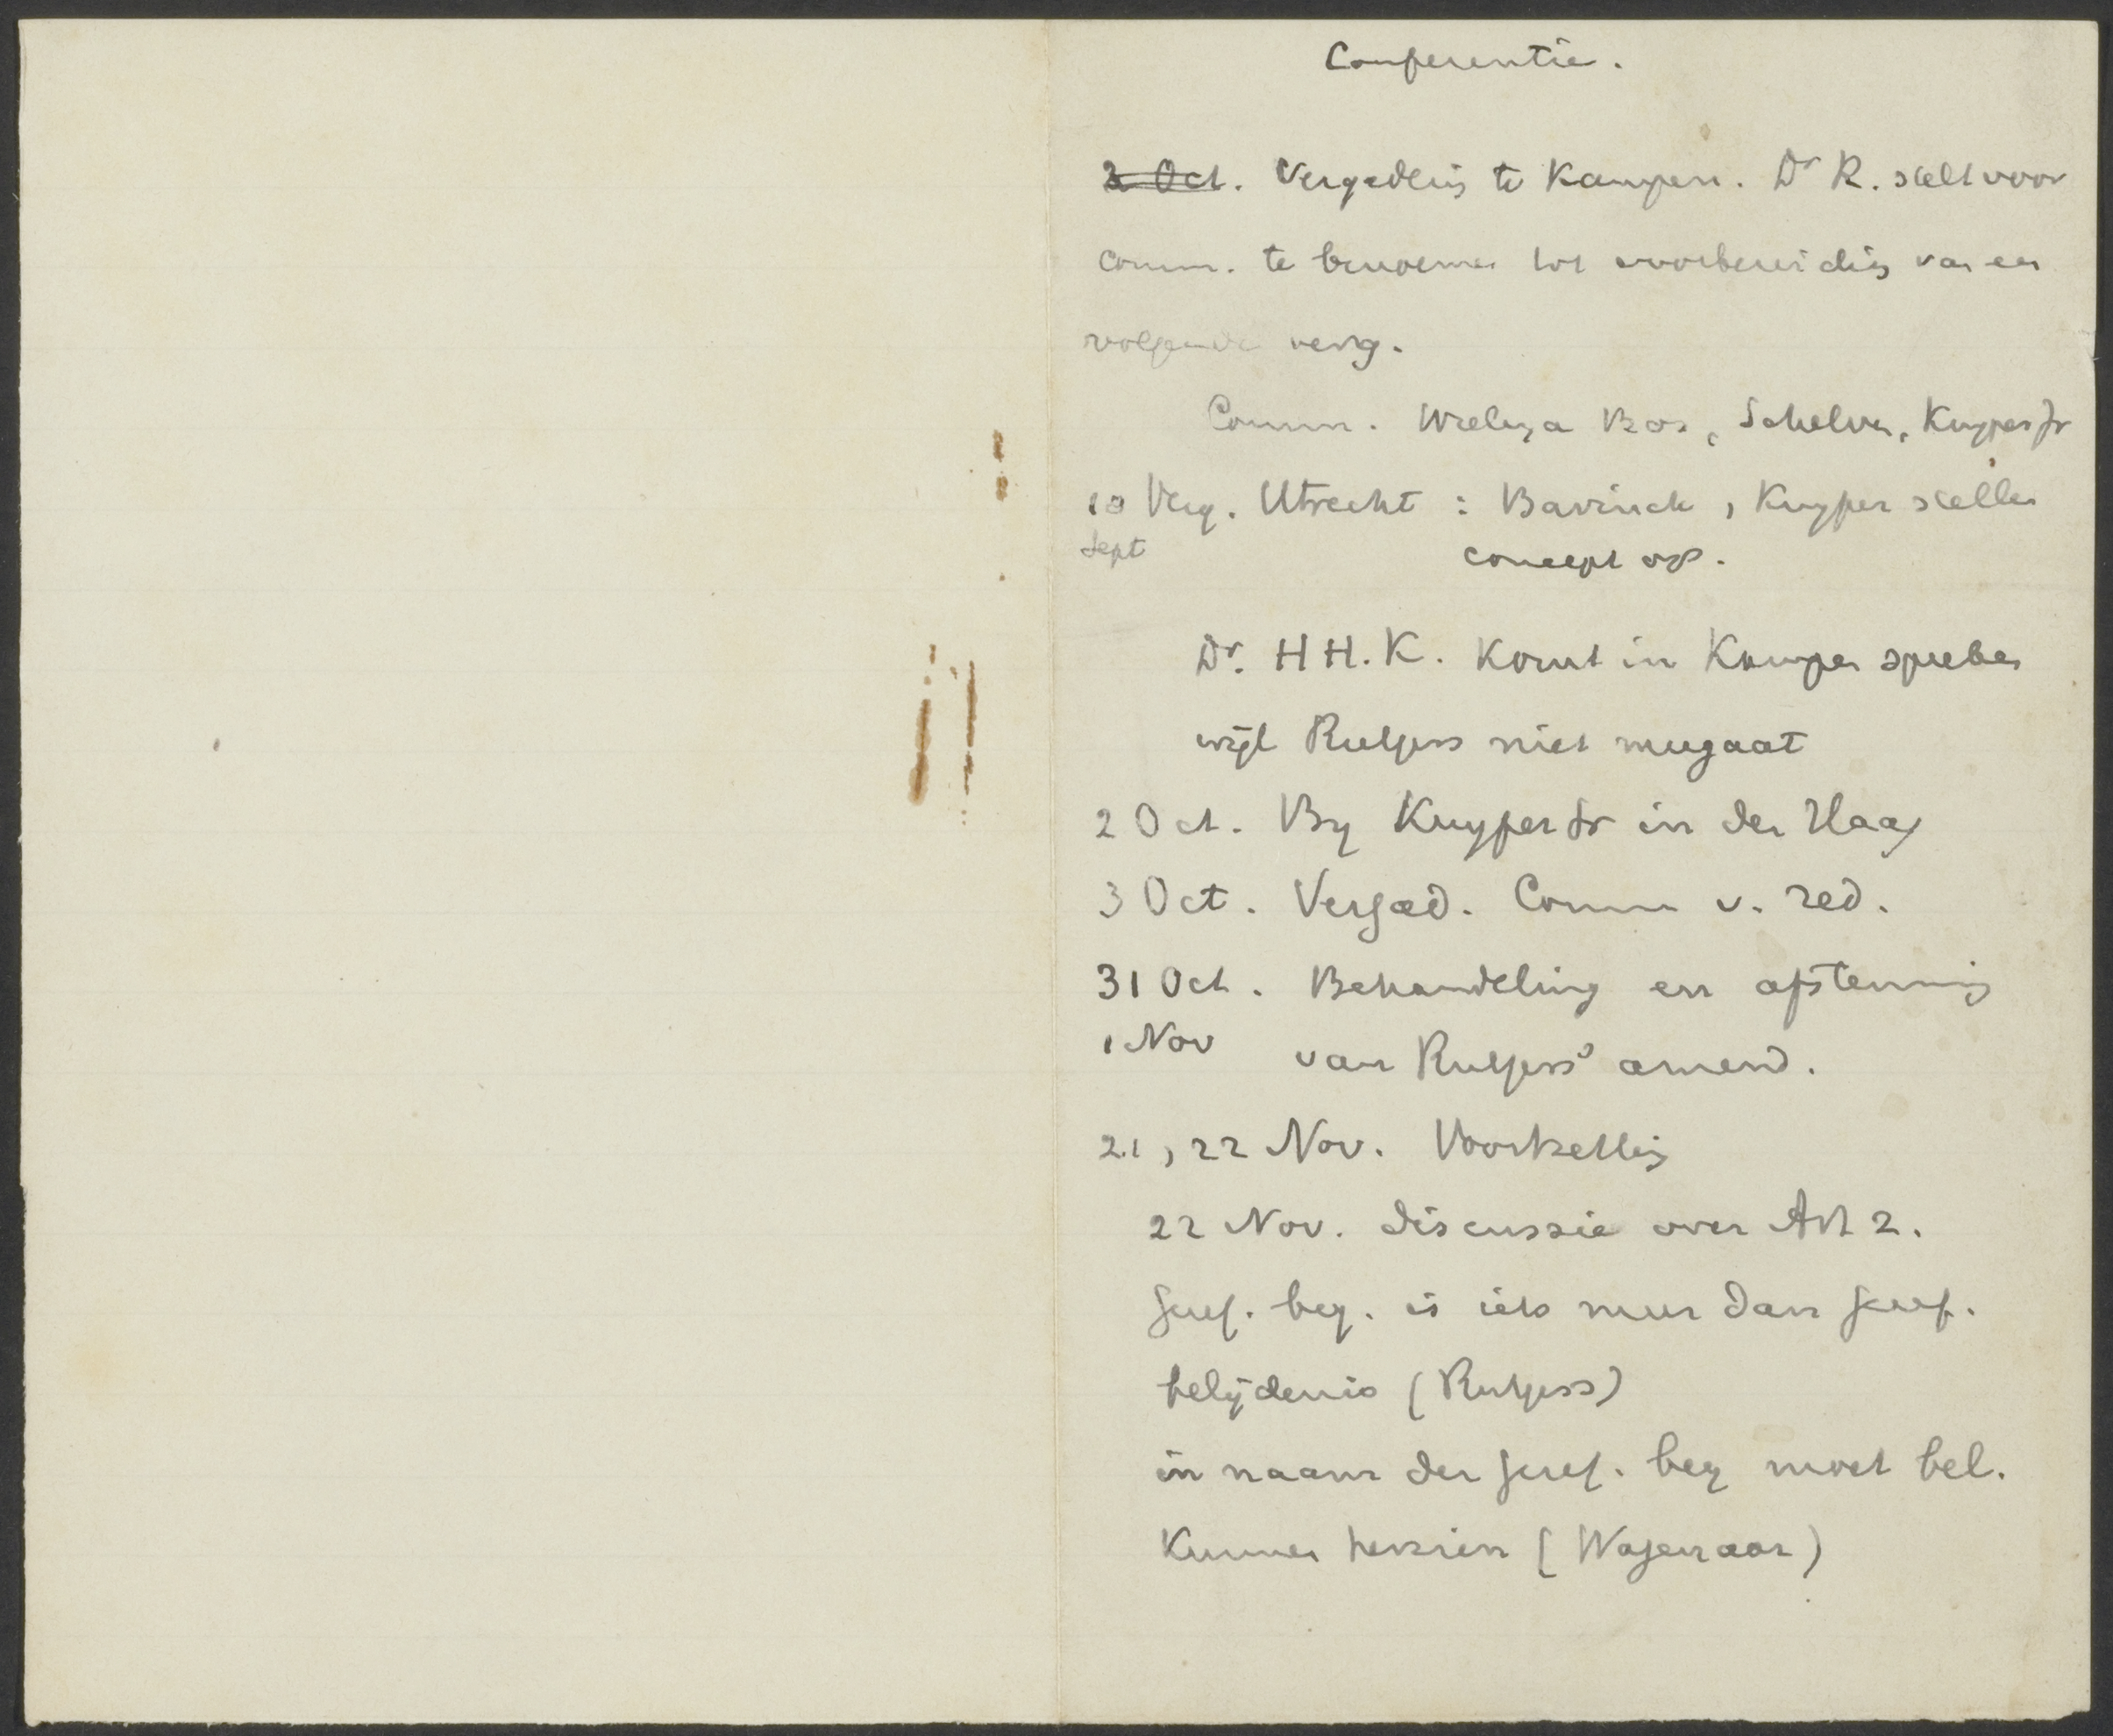 Conferentie.
2 Oct. Vergadering te Kampen. Dr R. stelt voor
comm. te benoemen tot voorbereiding van een
volgende verg.
Comm. Wielenga Bos, Schelven, Kuyper Jr
Verg. Utrecht : Bavinck, Kuyper stellen
Sept
concept op.
Dr. H H. K. komt in Kampen spreken
wijl Rutgers niet meegaat
2 Oct. By Kuyper Sr in den Haag
3 Oct. Vergad. Comm v. red.
31 Oct. Behandeling en afstemming
1 Nov van Rutgers' amend.
21, 22 Nov. Voortzetting
22 Nov. discussie over Art 2.
Geref. beg. is iets meer dan geref.
belijdenis (Rutgers)
in naam der geref. beg moet bel.
kunnen herzien (Wagenaar)